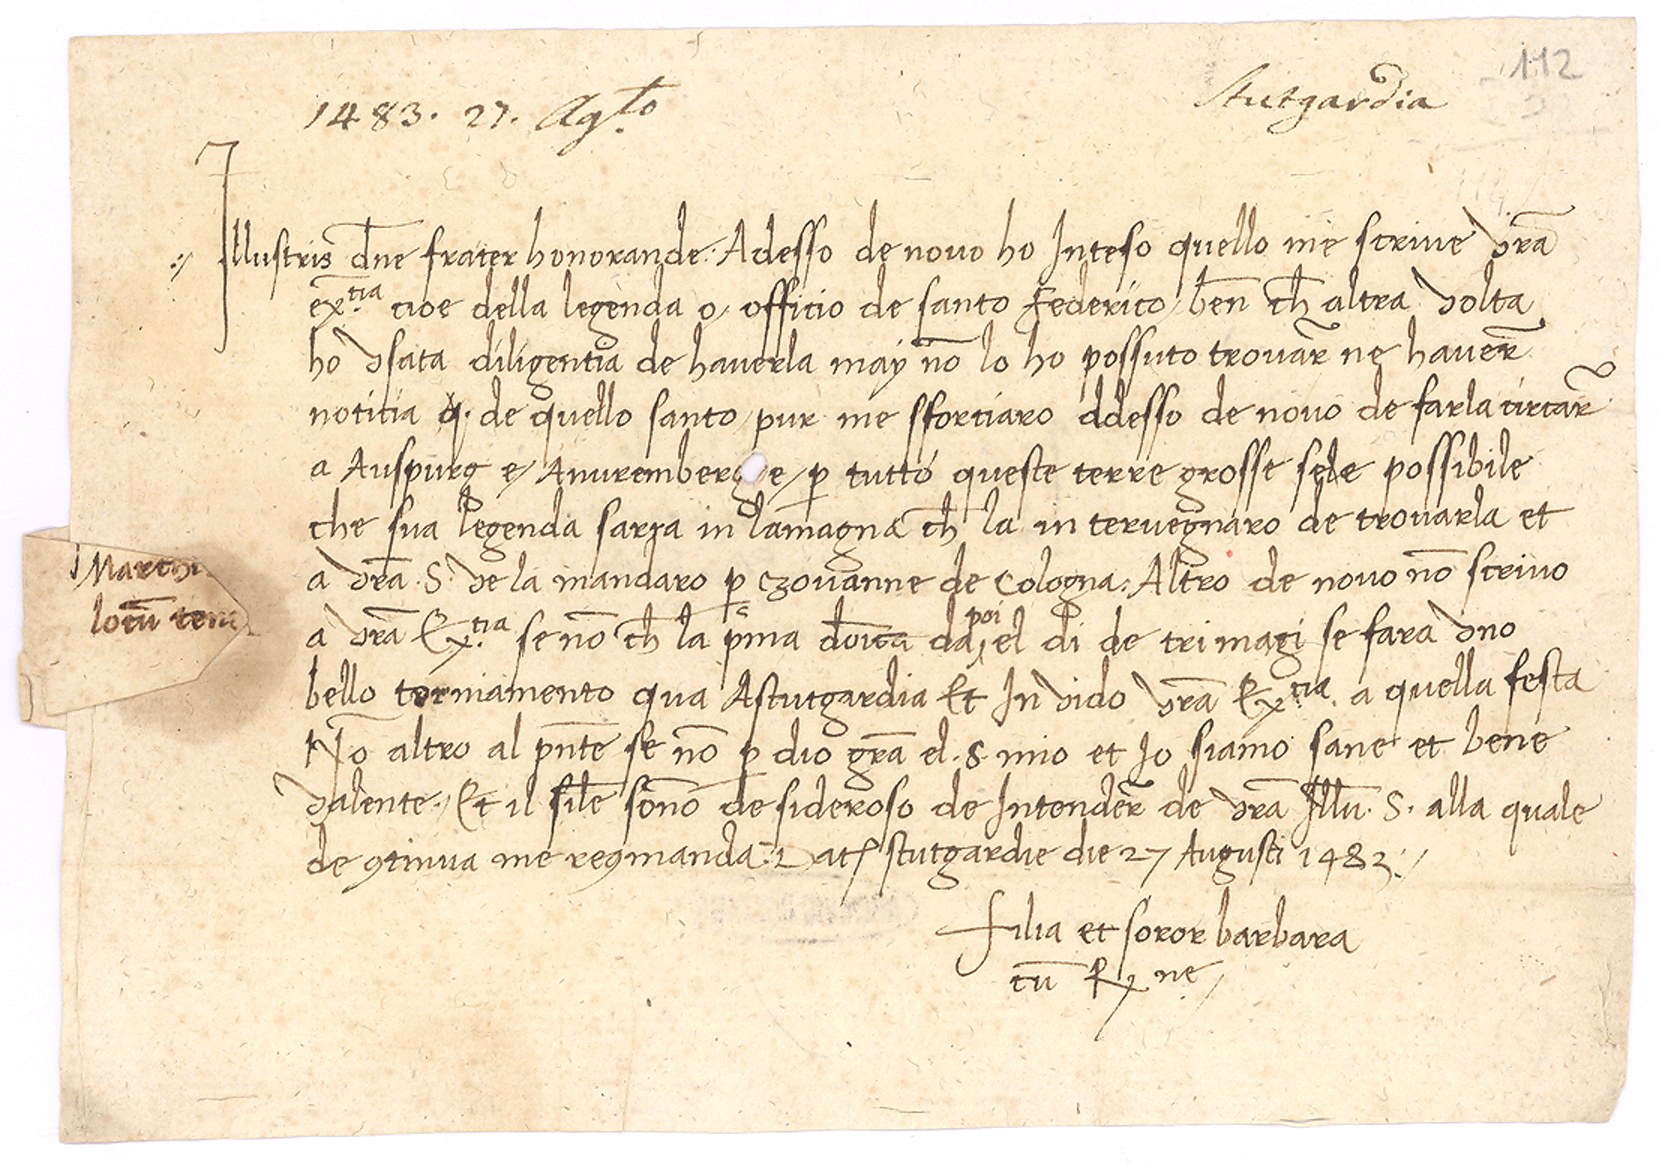 112
1483. 27. Ag.to
Stutgardia
Illustris dn̄e frater honorande. Adesso de novo ho Inteso quello me scrive vrā
ex.tia cioe della legenda o/ officio de santo Federico/ ben ch̄ altra volta
ho vsata diligentia de haverla may nō lo ho possuto trovar̄ ne haver̄
noticia q. de quello santo/ pur me sforciaro ddesso de novo de farla circar̄
a Auspurg e/ Anuremberg e/ p̱ tutto queste terre grosse sele possibile
che sua legenda sarra in lamagna ch̄ la intervegnaro de trovarla et
a vrā .S. ve la mandaro p̱ czovanne de Cologna: Altro de novo nō scrivo
a vrā Ex.tia se nō ch̄ la p̄ma dōīca da poi el di de tri magi se fara vno
bello torniamento qua Astutgardia Et Invido vrā Ex.tia. a quella festa
Nō altro al pn̄te se nō p̱ dio grā el .S. mio et Io siamo sane et bene
valente. Et il sil̄e sōno desideroso de Intender̄ de vrā Illū. S. alla quale
de ꝯtinua me reꝯmanda: Dat̄ stutgardie die 27 Augusti 1483:/
filia et soror barbara
cū Rx.ne/
locū ten